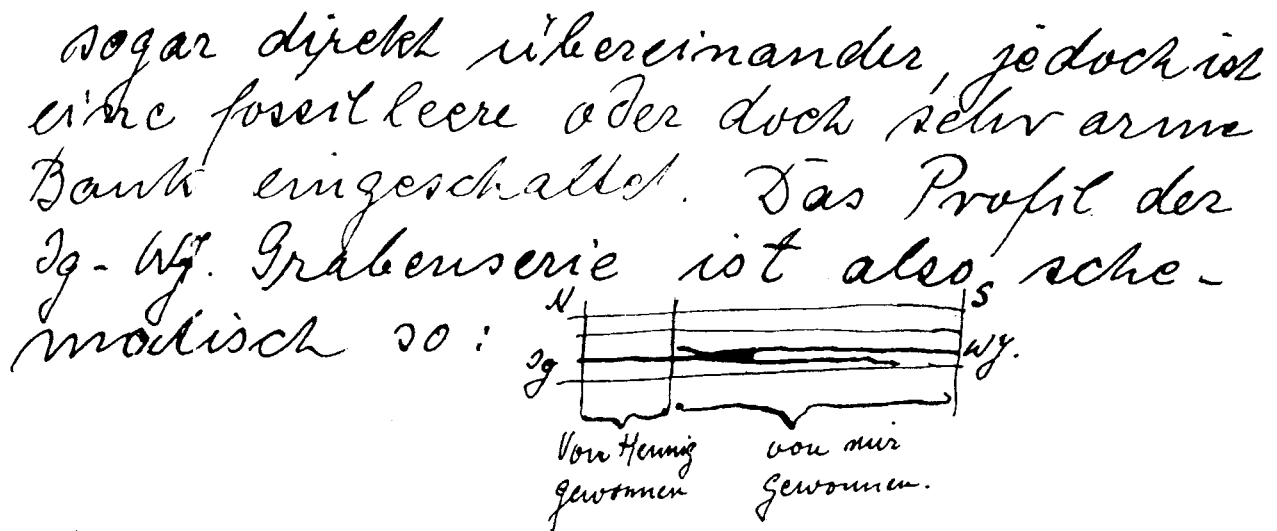 sogar direkt übereinander, jedoch ist
eine fossilleere oder doch sehr arme
Bank eingeschaltet. Das Profil der
Ig-Wj. Grabenserie ist also sche-
matisch so:
N S
Ig Wj.
Von Hennig von mir
gewonnen gewonnen.